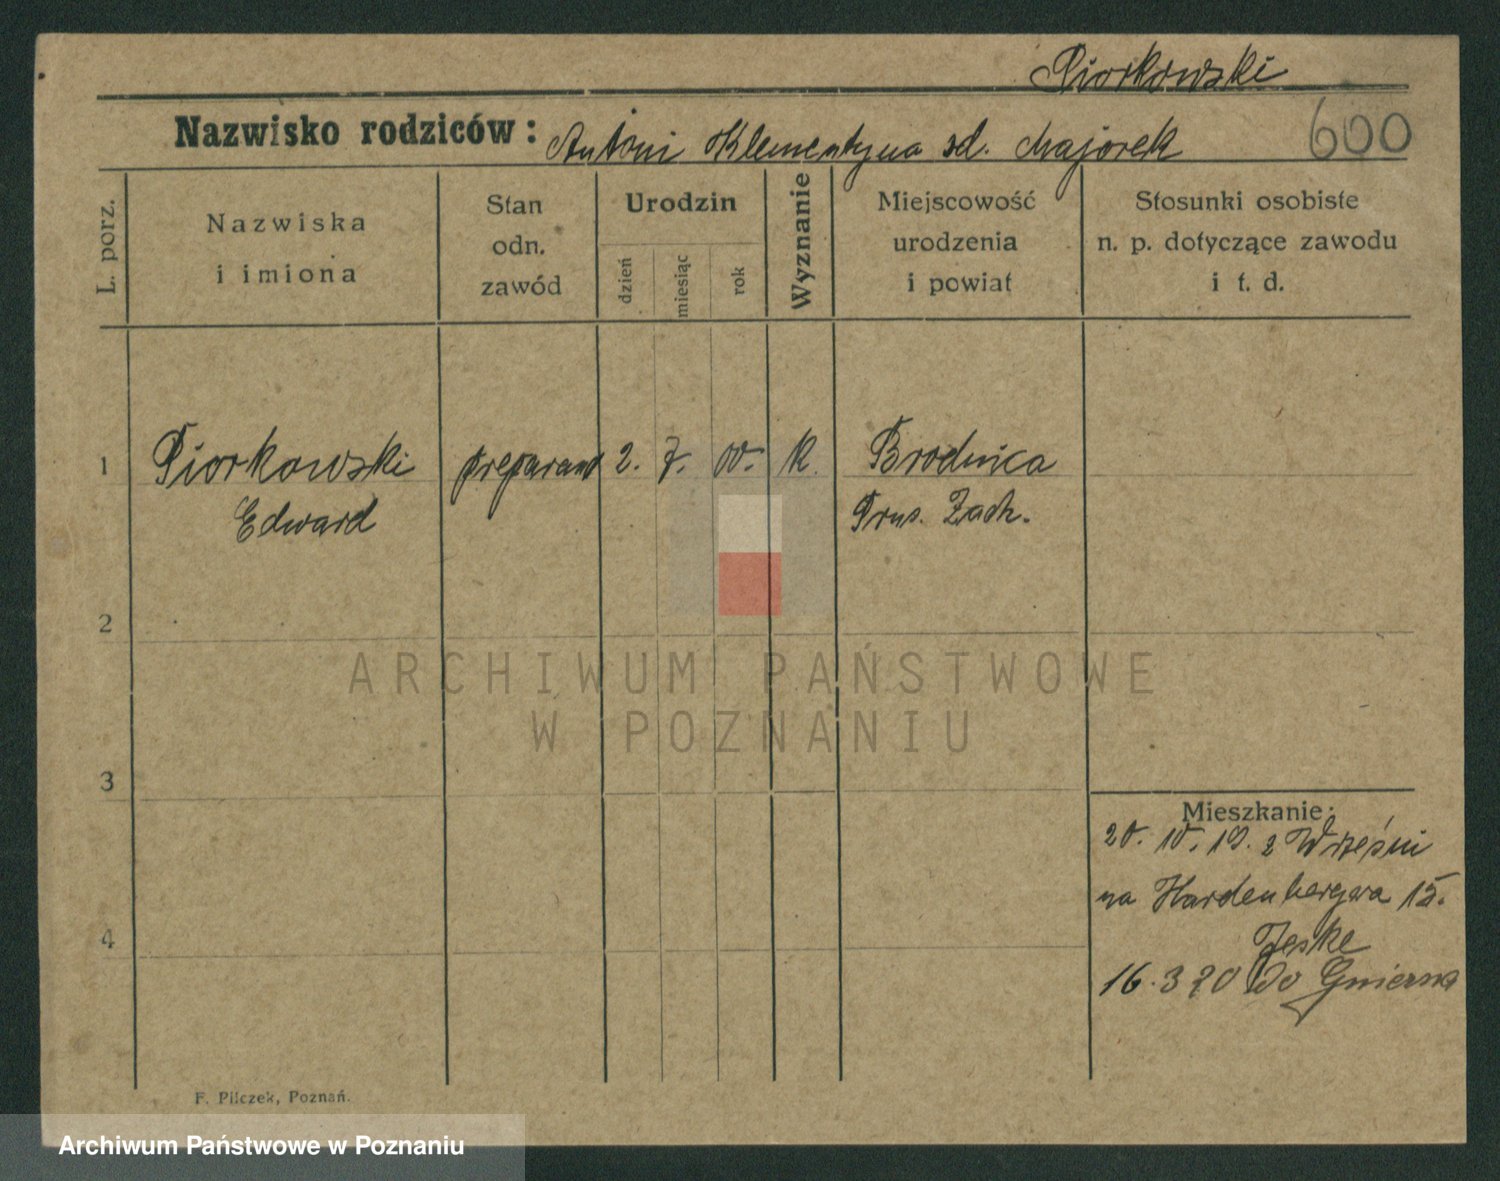 Piorkowski
Nazwisko rodziców: Antoni Klementyna zd. Majorek
600
L. porz.
Nazwiska
i imiona
Stan
odn.
zawód
Urodzin
dzień
miesiąc
rok
Wyznanie
Miejscowość
urodzenia
i powiat
Stosunki osobiste
n. p. dotyczące zawodu
i t. d.
1 Piorkowski preparand 2. 7. 00. k. Brodnica
Edward Prus. Zach.
2
3
4
Mieszkanie:
20. 10. 19. z Wrześni
na Hardenbergera 15.
Jeske
16. 3 20 do Gniezna
F. Pilczek, Poznań.
ARCHIWUM PAŃSTWOWE
W POZNANIU
Archiwum Państwowe w Poznaniu